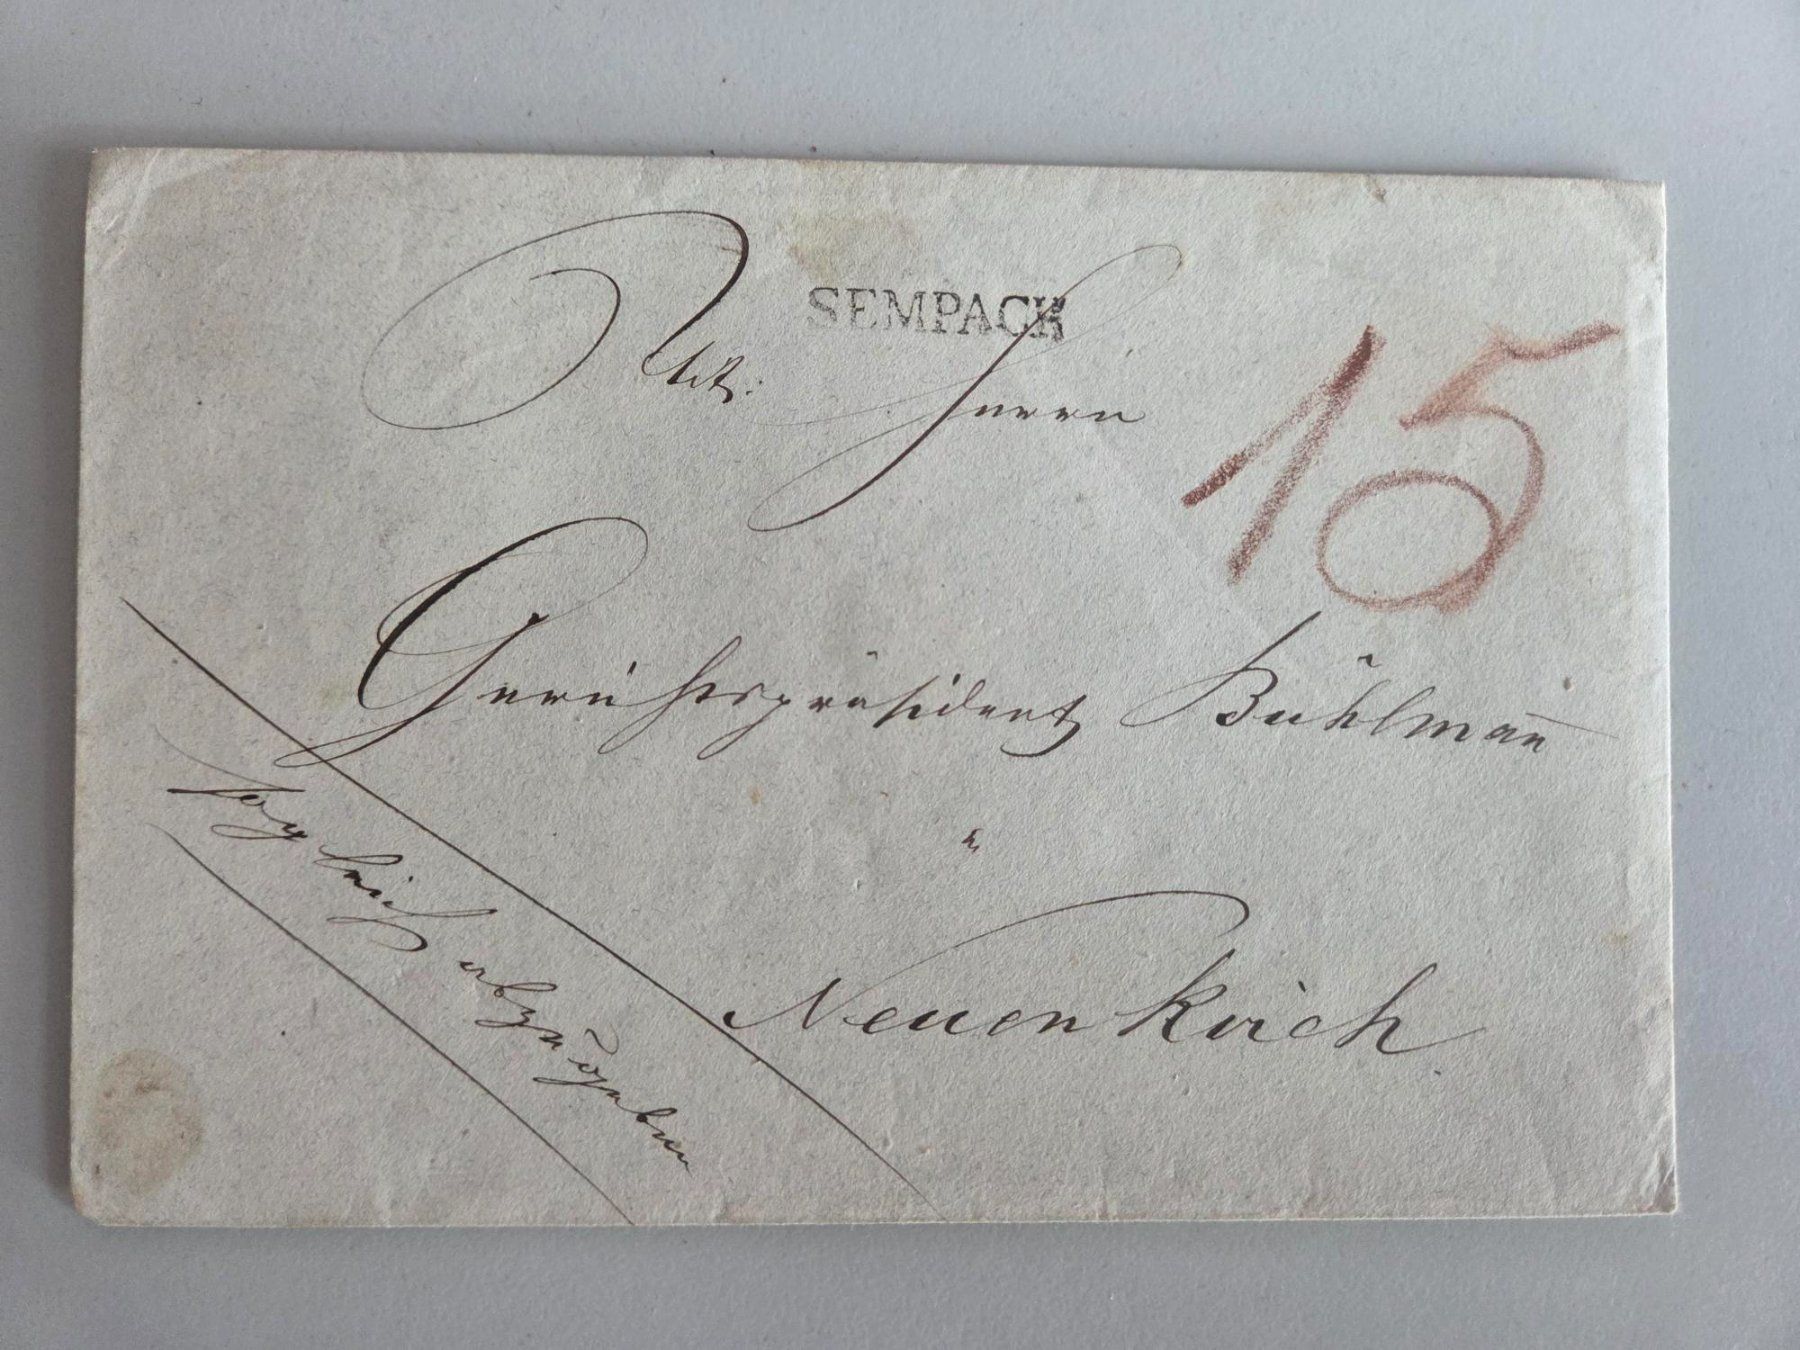 SEMPACH
Tit: Herrn
15
Gerichtspräsident Bühlman̄
Neuenkirch
sogleich abzugeben